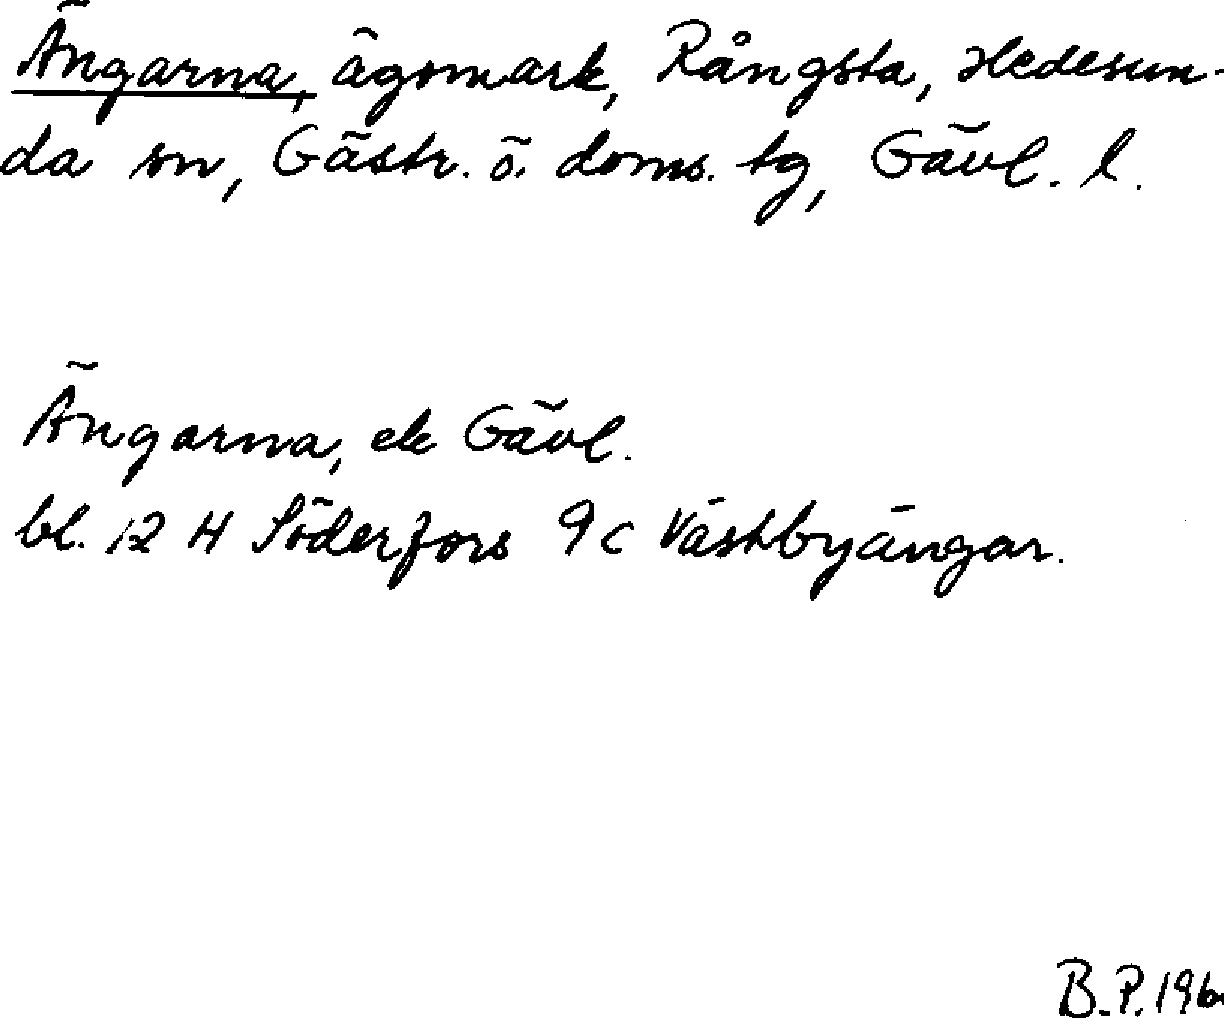 Ängarna, ägomark, Rångsta, Hedesun-
da sn, Gästr. ö. doms. tg, Gävl. l.
Ängarna, ek Gävl.
bl. 12 H Söderfors 9 c Västbyängar.
B.P. 196